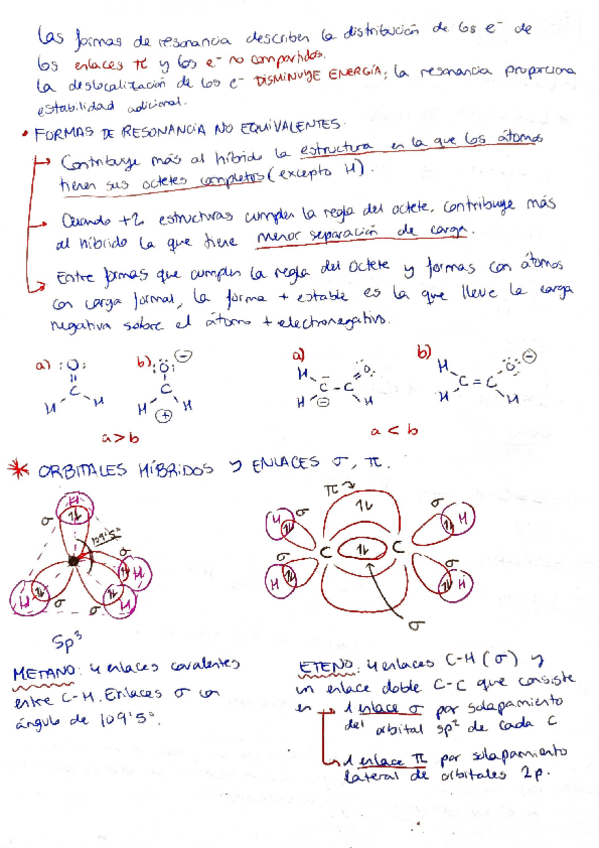 Las formas de resonancia describen la distribución de los e⁻ de
los enlaces π y los e⁻ no compartidos.
La deslocalización de los e⁻ DISMINUYE ENERGÍA; la resonancia proporciona
estabilidad adicional.
• FORMAS DE RESONANCIA NO EQUIVALENTES.
→ Contribuye más al híbrido la estructura en la que los átomos
tienen sus octetes completos (excepto H).
→ Cuando +2 estructuras cumplen la regla del octete, contribuye más
al híbrido la que tiene menor separación de carga.
→ Entre formas que cumplen la regla del octete y formas con átomos
con carga formal, la forma + estable es la que lleve la carga
negativa sobre el átomo + electronegativo.
a) :O: b) :O: ⊖ a) O b) O ⊖
C H H C H H ⊕ H H C ⊖ C H H H C = C H
a > b a < b
* ORBITALES HÍBRIDOS Y ENLACES σ, π.
H σ 109'5º σ H H H σ σ
π σ H σ H C C σ H σ H
σ
Sp³
METANO: 4 enlaces covalentes
entre C-H. Enlaces σ con
ángulo de 109'5º.
ETENO: 4 enlaces C-H (σ) y
un enlace doble C-C que consiste
en → 1 enlace σ por solapamiento
del orbital sp² de cada C
→ 1 enlace π por solapamiento
lateral de orbitales 2p.